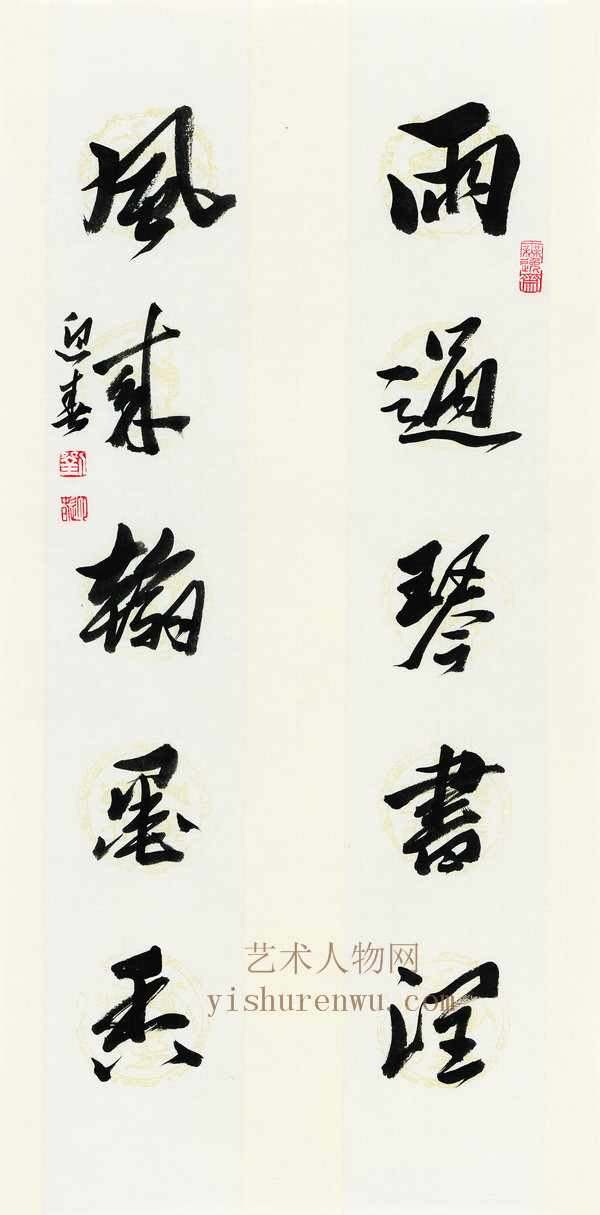 雨過琴書潤
風來翰墨香
迎春
艺术人物网
yishurenwu.com